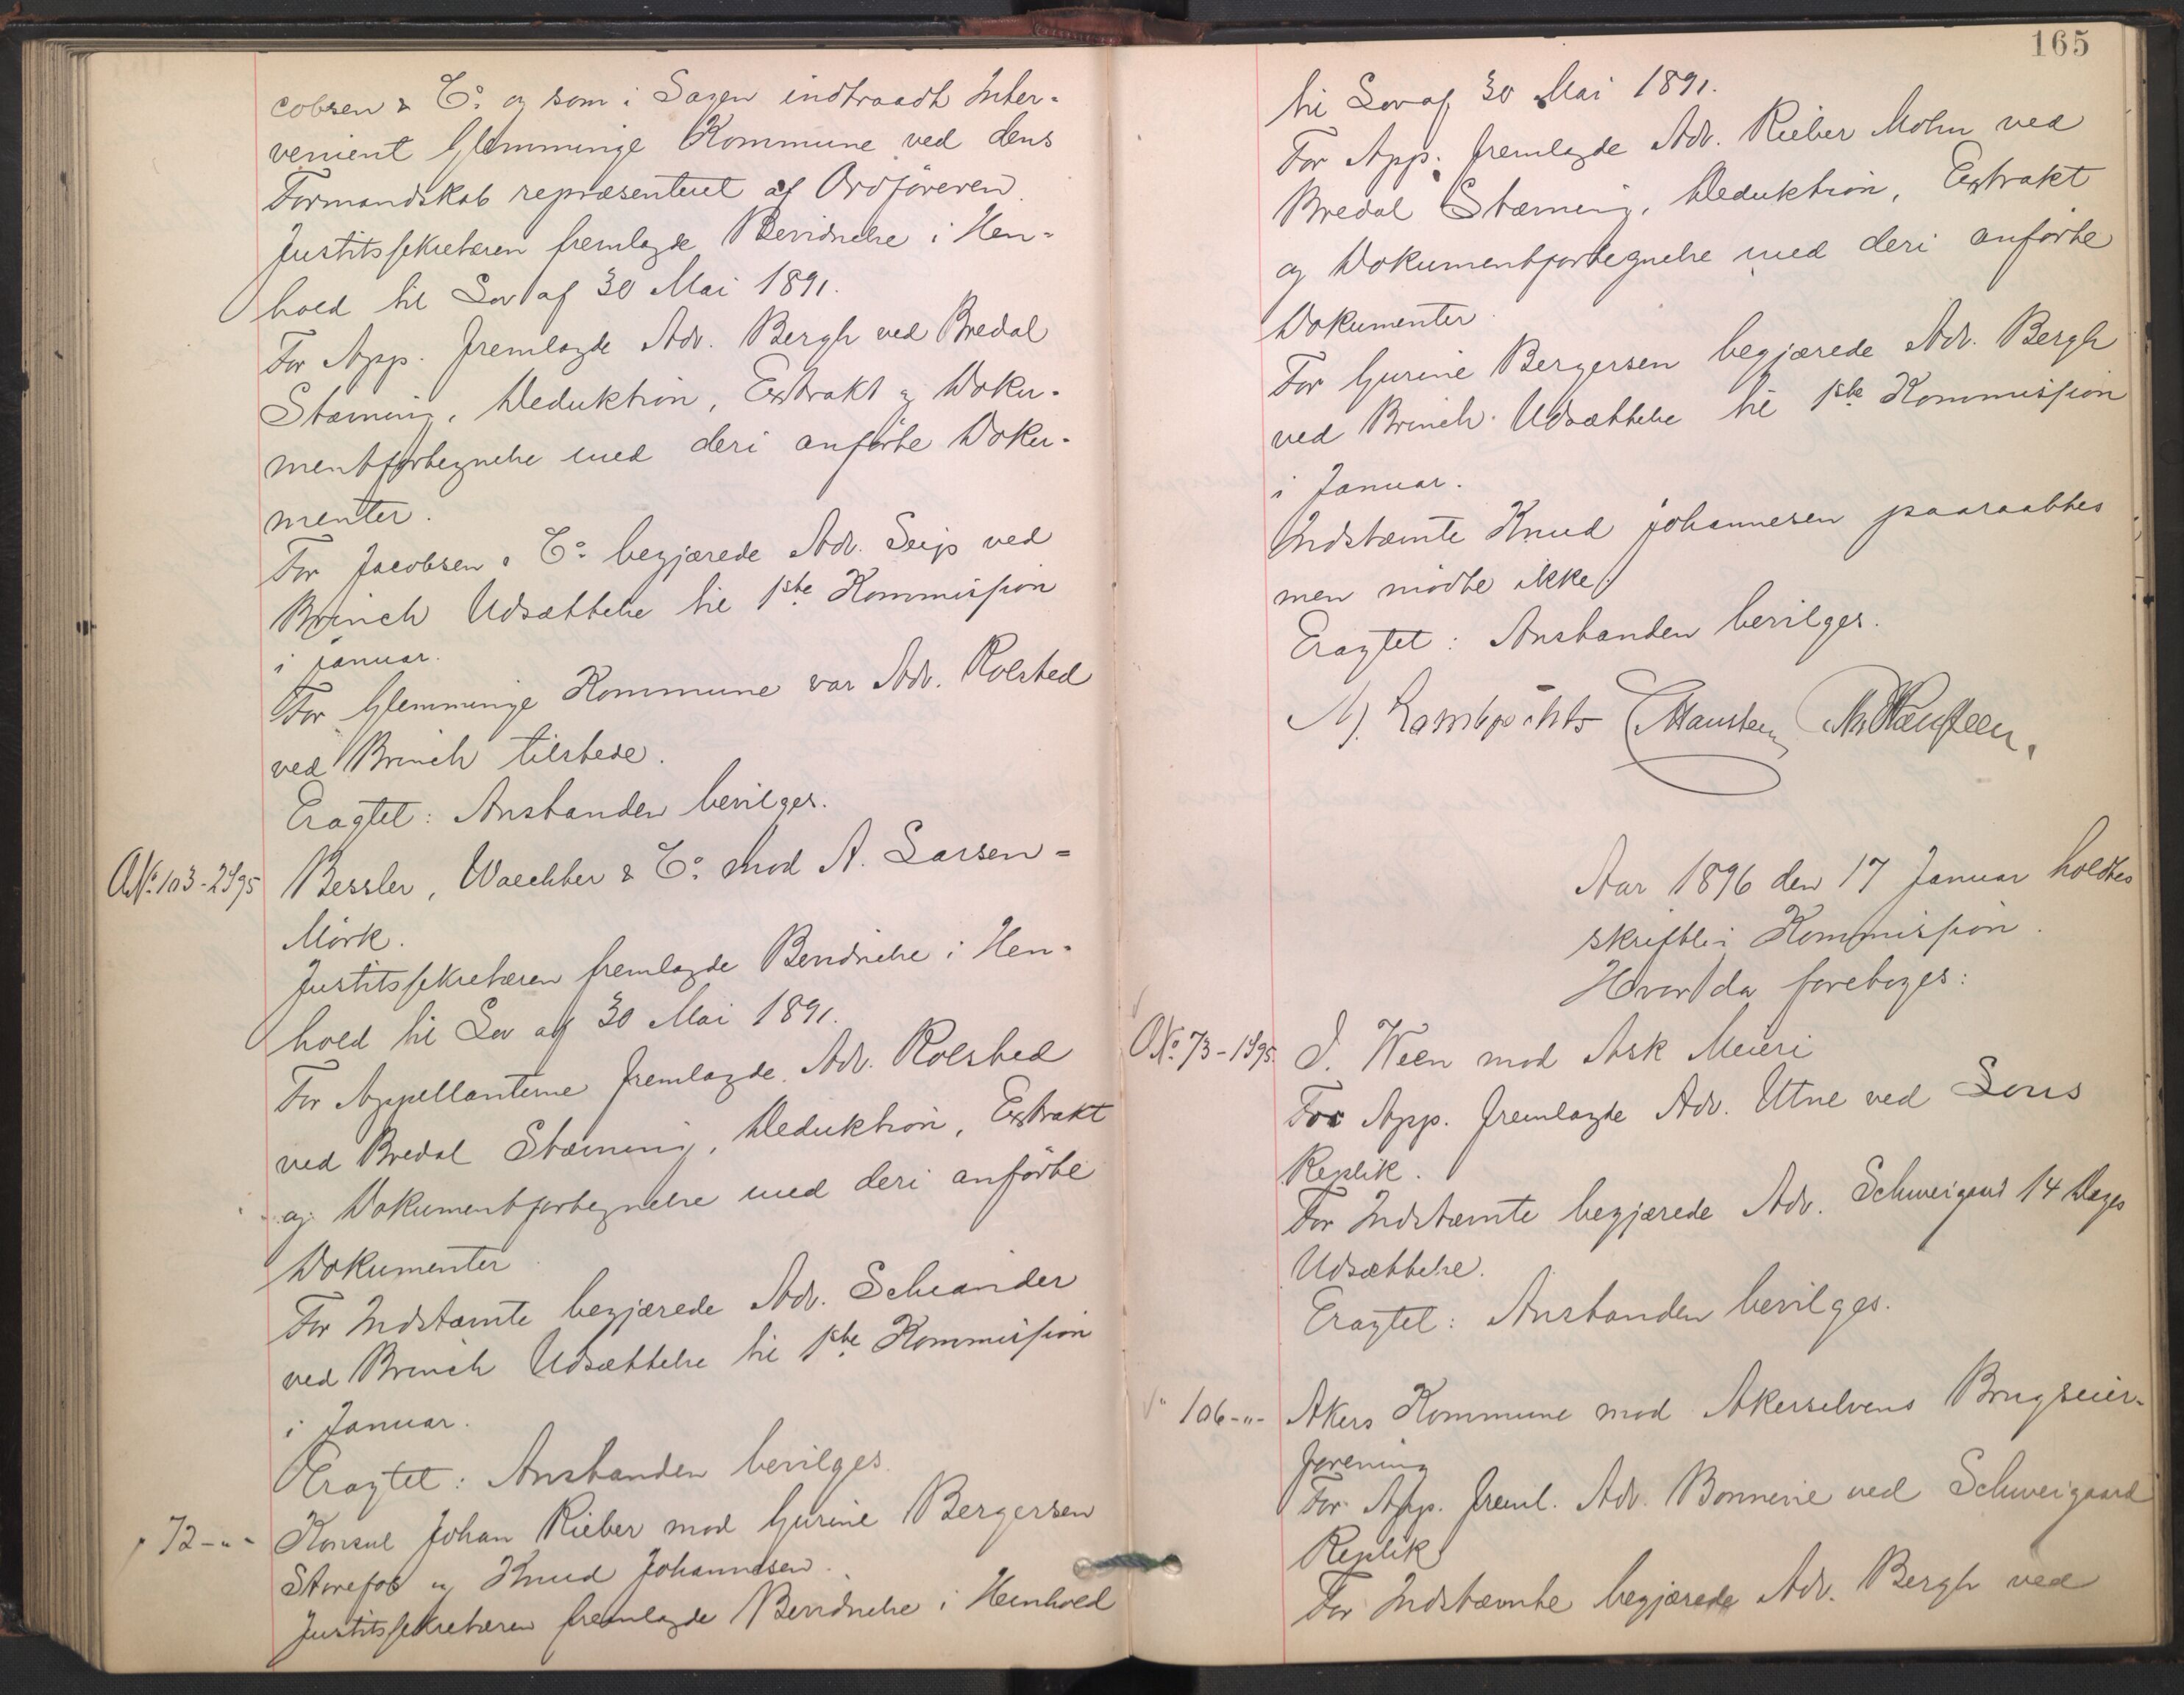 cobsen & Co. og som i Sagen indtraadt Inter-
venient Glemminge Kommune ved dens
Formandskab repræsenteret af Ordføreren.
Justitssekretæren fremlagde Bevidnelse i Hen-
hold til Lov af 30 Mai 1891.
For App. fremlagde Adv. Bergh ved Bredal
Stævning, Deduktion, Extrakt og Doku-
mentfortegnelse med deri anførte Doku-
menter.
For Jacobsen & Co. begjærede Adv. Seip ved
Brinch Udsættelse til 1ste Kommission
i Januar.
For Glemminge Kommune var Adv. Rolsted
ved Brinch tilstede.
Eragtet: Anstanden bevilges.
A No. 103-2/95 Bessler, Waechter & Co. mod A. Larsen-
Mörk.
Justitssekretæren fremlagde Bevidnelse i Hen-
hold til Lov af 30 Mai 1891.
For Appellanterne fremlagde Adv. Rolsted
ved Bredal Stævning, Deduktion, Extrakt
og Dokumentfortegnelse med deri anførte
Dokumenter.
For Indstævnte begjærede Adv. Scheander
ved Brinch Udsættelse til 1ste Kommission
i Januar.
Eragtet: Anstanden bevilges.
" 72-"- Konsul Johan Rieber mod Gurine Bergersen
Storefos og Knud Johannesen.
Justitssekretæren fremlagde Bevidnelse i Henhold
165
til Lov af 30 Mai 1891.
For App. fremlagde Adv. Rieber Mohn ved
Bredal Stævning, Deduktion, Extrakt
og Dokumentfortegnelse med deri anførte
Dokumenter.
For Gurine Bergersen begjærede Adv. Bergh
ved Brinch Udsættelse til 1ste Kommission
i Januar.
Indstævnte Knud Johannesen paaraabtes
men mødte ikke.
Eragtet: Anstanden bevilges.
Hansteen
Aar 1896 den 17 Januar holdtes
skriftlig Kommission.
Hvor da foretoges:
A No. 73-1/95. I. Ween mod Ask Meieri
For App. fremlagde Adv. Utne ved Lous
Replik.
For Indstævnte begjærede Adv. Schweigaard 14 Dages
Udsættelse.
Eragtet: Anstanden bevilges.
" 106-"- Akers Kommune mod Akerselvens Brugseier-
forening
For App. freml. Adv. Bonnevie ved Schweigaard
Replik
For Indstævnte begjærede Adv. Bergh ved